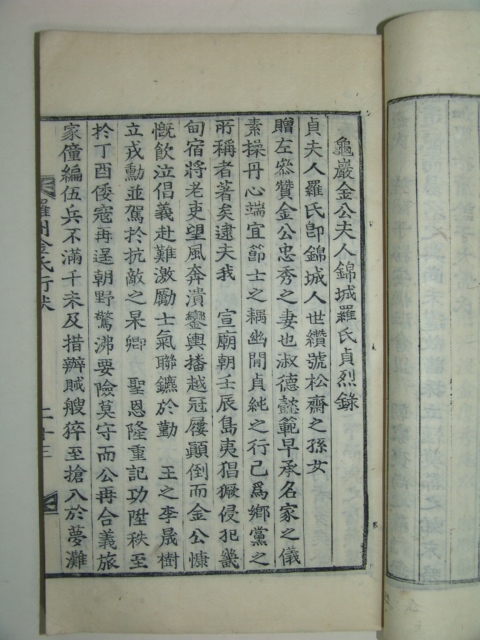 龜巖金公夫人錦城羅氏貞烈錄
貞夫人羅氏卽錦城人世纘號松齋之孫女
贈左叅贊金公忠秀之妻也淑德懿範早承名家之儀
素操丹心端宜節士之耦幽閒貞純之行已爲鄕黨之
所稱者著矣逮夫我 宣廟朝壬辰島夷猖獗侵犯畿
甸宿將老吏望風奔潰鑾輿播越冠屨顚倒而金公慷
慨飮泣倡義赴難激勵士氣聯鑣於勤 王之李晟樹
立戎勳並駕於抗敵之杲卿 聖恩隆重記功陞秩至
於丁酉倭寇再逞朝野驚沸要險莫守而公再合義旅
家僮編伍兵不滿千未及措辦賊艘猝至搶入於夢灘
羅州金氏行狀
二十三